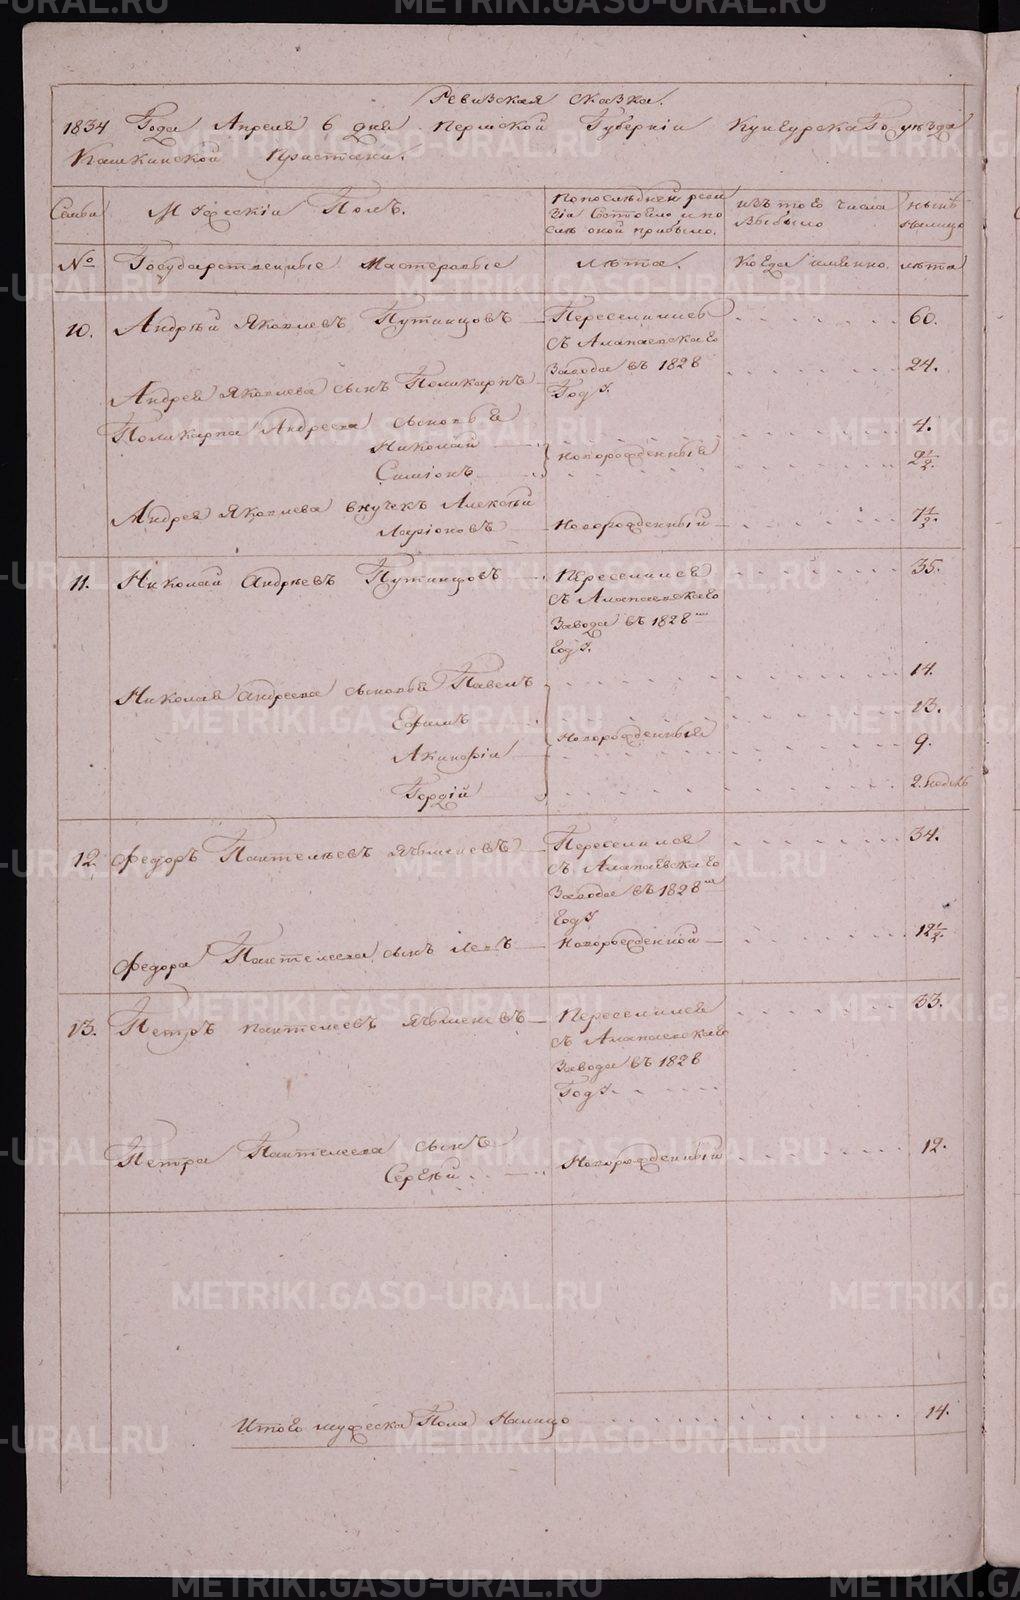 Ревизская сказка.
1834 Года Апреля 6 дня Пермской Губернiи Кунгурскаго уезда
Кашкинской Пристани.
Семьи
Мужескiй Полъ.
По последней реви
зiи состояло и по
сле оной прибыло.
изъ того числа
Выбыло
ныне
Налицо
№
Государственные Мастеровые
Лета.
Когда имянно.
лета
10. Андрей Яковлевъ Путинцовъ
Переселился
съ Алапаевскаго
Завода въ 1828
Году.
60.
Андрея Яковлева сынъ Поликарпъ
24.
Поликарпа Андреева сыновья
Николай
Новорожденныя
4.
Симiонъ
2½.
Андрея Яковлева внучекъ Алексей
Ларiоновъ
Новорожденный
7½.
11. Николай Андреевъ Путинцовъ
Переселился
съ Алапаевскаго
Завода въ 1828
году.
35.
Николая Андреева сыновья Павелъ
14.
Ефимъ
Новорожденныя
13.
Акинфiй
9.
Гордiй
2. недель
12 Федоръ Пантелеевъ Ячменевъ
Переселился
съ Алапаевскаго
Завода въ 1828
году
34.
Федора Пантелеева сынъ Левъ
Новорожденной
12½.
13. Петръ Пантелеевъ Ячменевъ
Переселился
съ Алапаевскаго
Завода въ 1828
Году.
33.
Петра Пантелеева сынъ
Сергей
Новорожденный
12.
Итого мужеска Пола Налицо
14.
METRIKI.GASO-URAL.RU